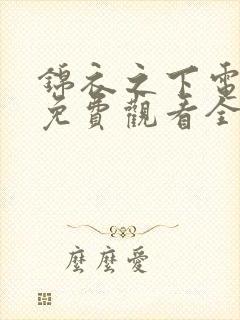 錦衣之下電
免費觀看全
麼麼愛